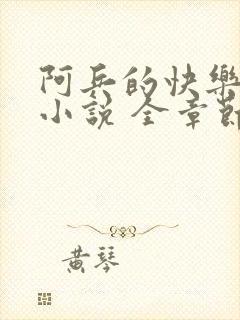 阿兵的快樂
小說 全章節
黃琴